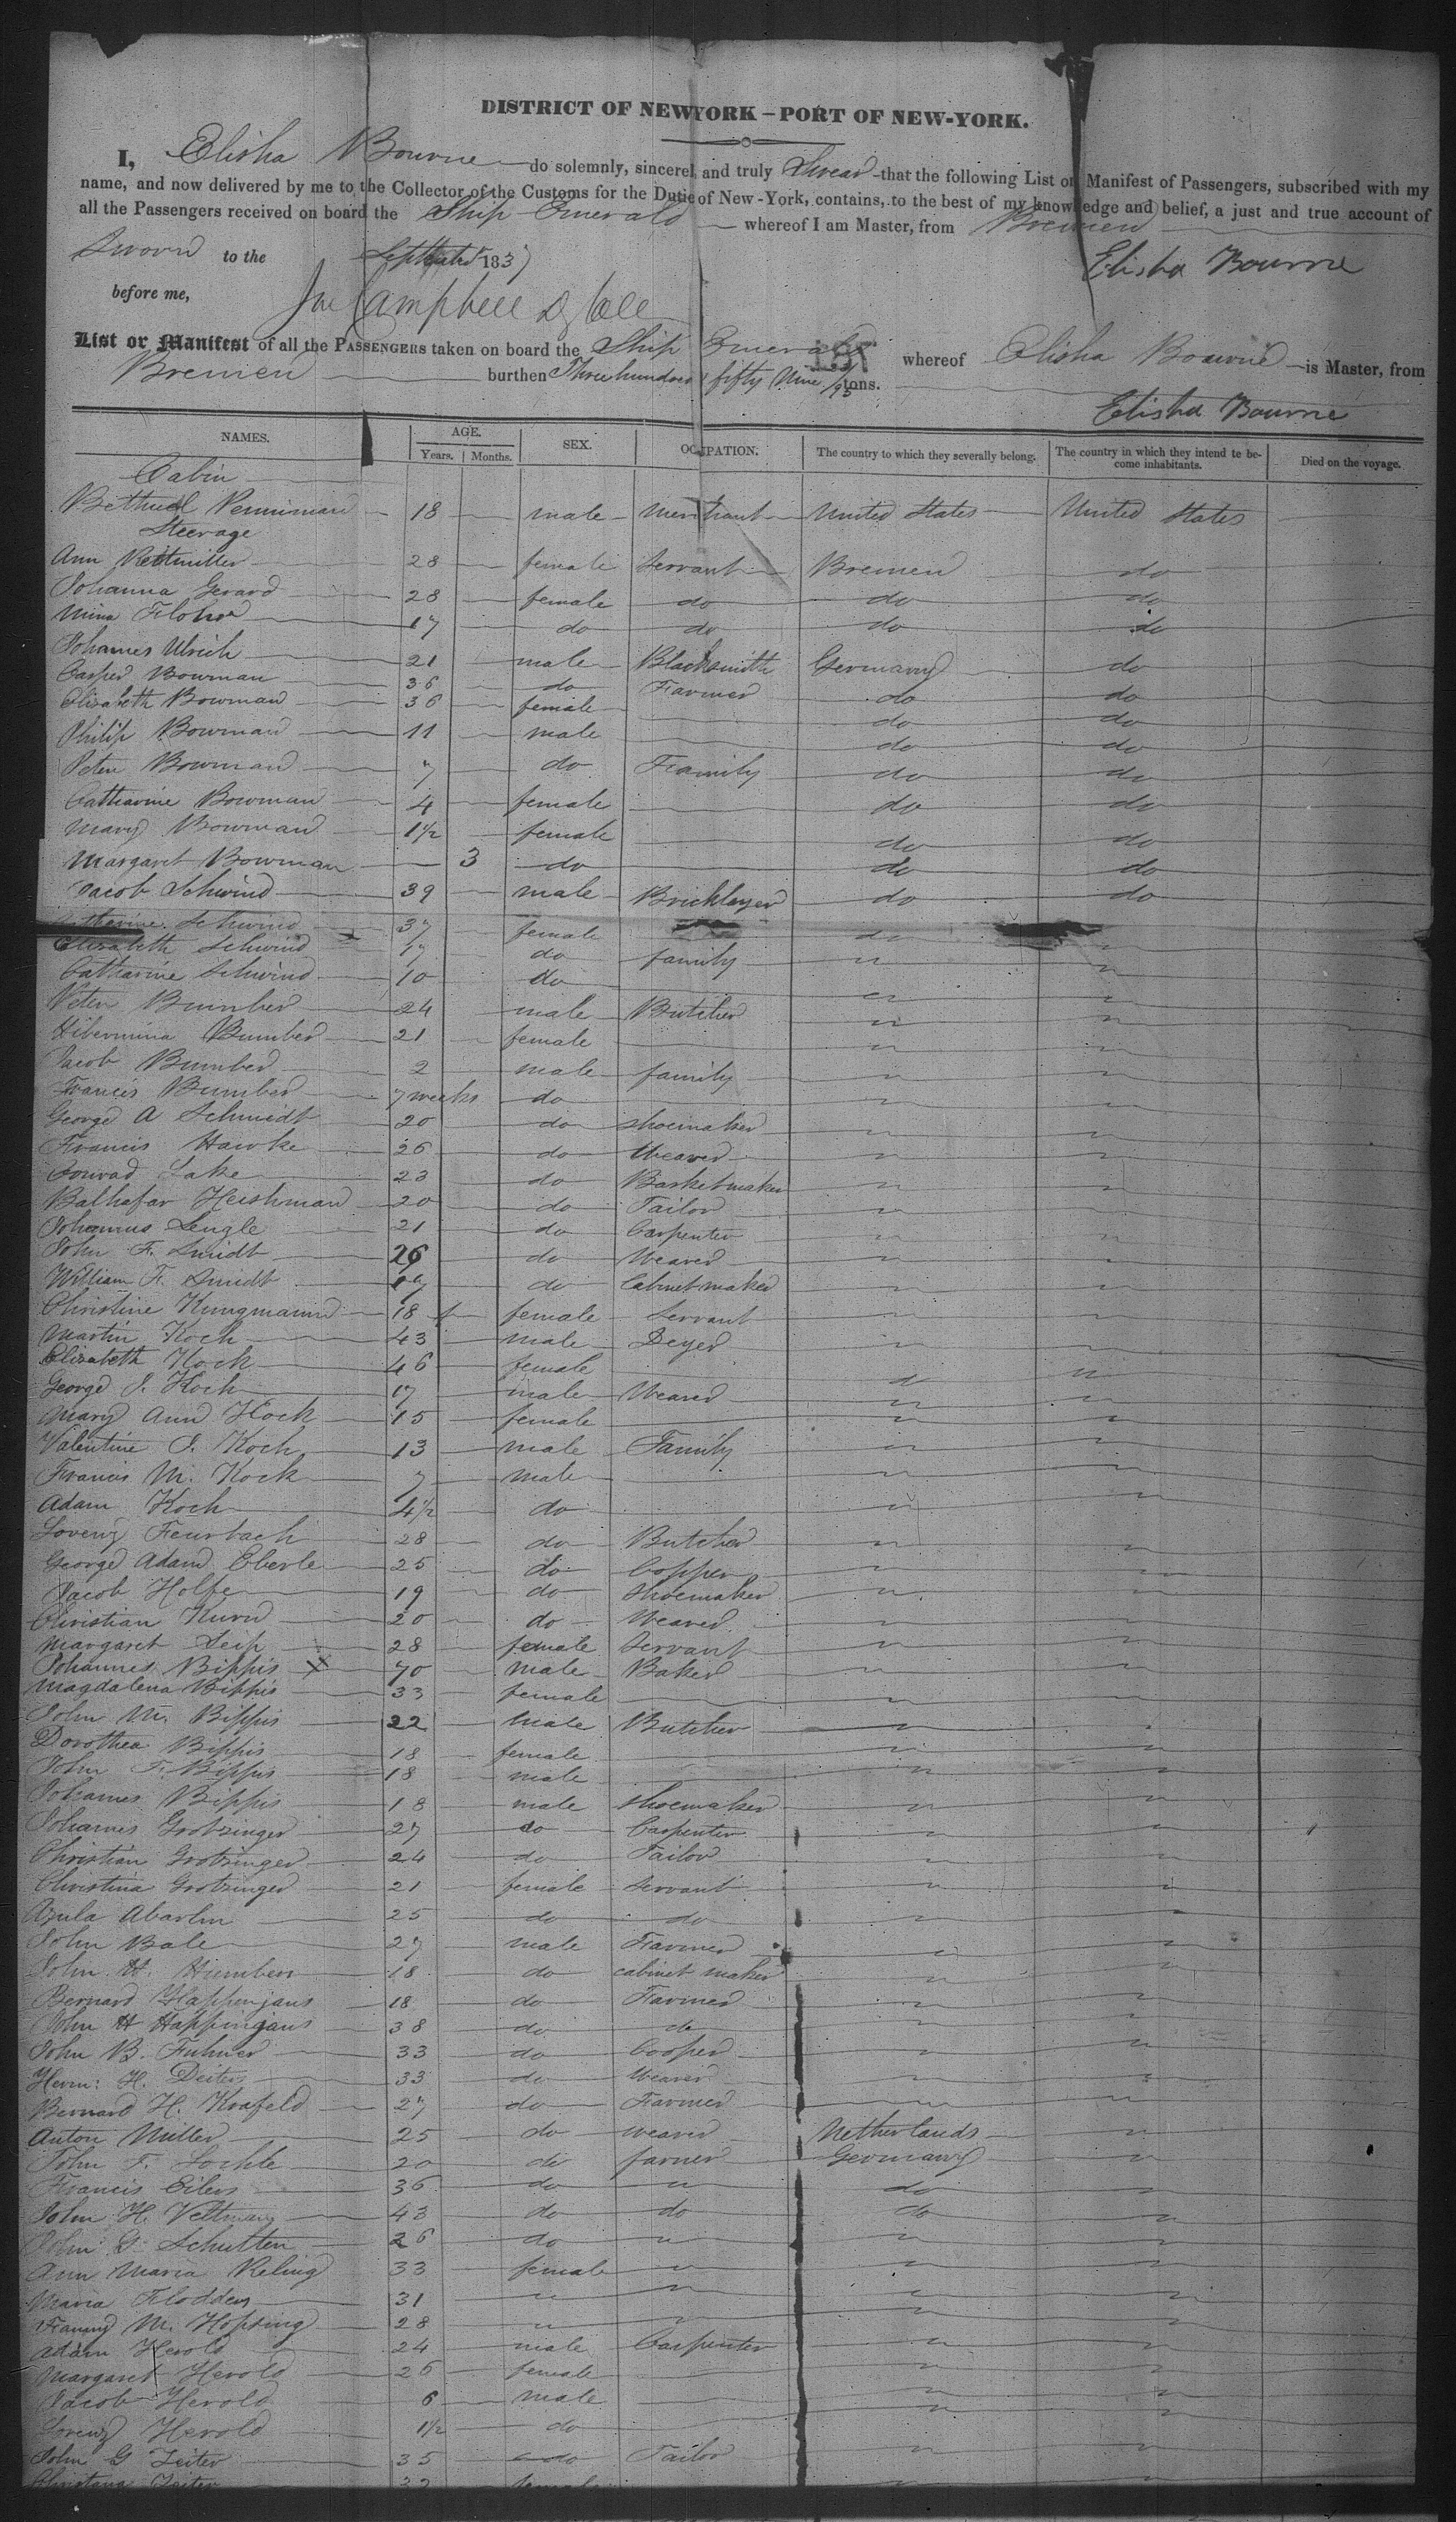 DISTRICT OF NEW YORK – PORT OF NEW-YORK.
I, Elisha Bourne do solemnly, sincerel and truly Swear that the following List or Manifest of Passengers, subscribed with my
name, and now delivered by me to the Collector of the Customs for the Dutie of New-York, contains, to the best of my knowledge and belief, a just and true account of
all the Passengers received on board the Ship Emerald whereof I am Master, from Bremen
Sworn to the 1837 Elisha Bourne
before me, Campbell
List or Manifest of all the PASSENGERS taken on board the Ship Emerald whereof Elisha Bourne is Master, from
Bremen burthen Three hundred fifty Nine /95 tons.
Elisha Bourne
NAMES. AGE. Years. Months. SEX. OCUPATION. The country to which they severally belong. The country in which they intend te become inhabitants. Died on the voyage.
Cabin
Penniman 18 male Merchant United States United States
Steerage
Ann 28 female Servant Bremen do
Johanna Gerard 28 female do do do
Mina 17 do do do do
Johannes Ulrich 21 male Blacksmith Germany do
Casper Bowman 36 do Farmer do do
Elizabeth Bowman 36 female do do
Philip Bowman 11 male do do
Peter Bowman 7 do Family do do
Catharine Bowman 4 female do do
Mary Bowman 1½ female do do
Margaret Bowman 3 do do do
Jacob Schwind 39 male Bricklayer do do
Catharine Schwind 37 female do
Elizabeth Schwind 17 do family " "
Catharine Schwind 10 do " "
Peter Bumber 24 male Butcher " "
Bumber 21 female " "
Jacob Bumber 2 male family " "
Francis Bumber 7 weeks do " "
George A Schmidt 20 do shoemaker " "
Francis Hawke 26 do Weaver " "
Conrad Lake 23 do Basketmaker " "
Heishman 20 do Tailor " "
Johannus Lengle 21 do Carpenter " "
John F. Smidt 26 do Weaver " "
William F. Smidt do Cabinet maker " "
Christine 18 female Servant " "
Martin Koch 43 male Deyer " "
Elizabeth Kock 46 female do "
George J. Koch 17 male Weaver " "
Mary Ann Kock 15 female " "
Valentine J. Koch 13 male Family " "
Francis M. Kock 7 male " "
Adam Koch 4½ do " "
Lorenz Feurbach 28 do Butcher " "
George Adam Eberle 25 do Copper " "
Jacob Holfe 19 do shoemaker " "
Christian 20 do Weaver " "
Margaret Leip 28 female Servant " "
Johannes Bippis X 70 male Baker " "
Magdalena Bippis 33 female " "
John M. Bippis 22 male Butcher " "
Dorothea Bippis 18 female " "
John F. Bippis 18 male " "
Johannes Bippis 18 male shoemaker " "
Johannes Grotzinger 27 do Carpenter " "
Christian Grotzinger 24 do Tailor " "
Christina Grotzinger 21 female Servant " "
25 do do " "
John Bale 27 male Farmer " "
John H. 18 do cabinet maker " "
Bernard 18 do Farmer " "
John H Happinjans 38 do do " "
John B. 33 do Cooper " "
Herm: H. Deiters 33 do Weaver " "
Bernard H. Krafeld 27 do Farmer " "
Anton Miller 25 do weaver Netherlands "
John F. 20 do farmer Germany "
Francis Eilers 36 do " do
John H. Veltman 43 do do do "
John G. Schutten 26 do " " "
Ann Maria Reling 33 female " " "
Maria 31 " " " "
M. 28 " " " "
Adam Herold 24 male Carpenter " "
Margaret Herold 26 female " "
Jacob Herold 6 male " "
Lorenz Herold 1½ do " "
John G Zeiter 35 do Tailor " "
Christana Zeiter 32 female " "